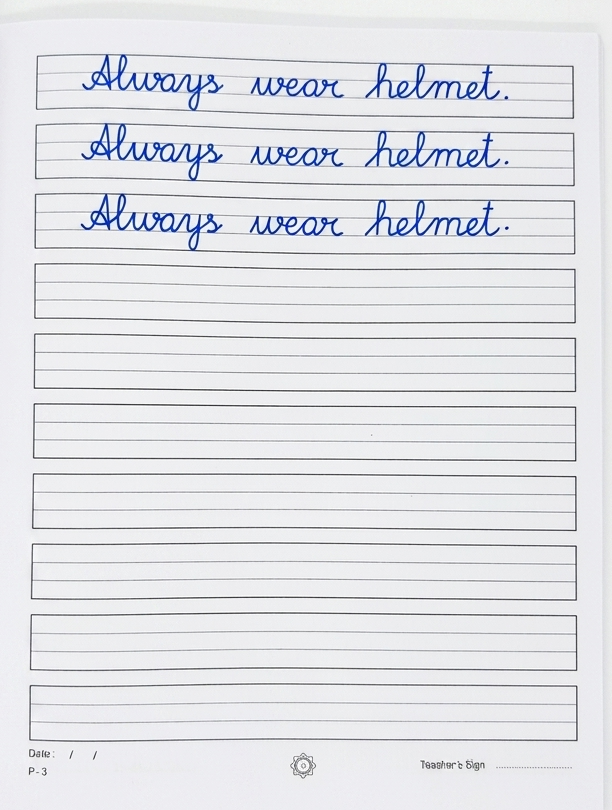 Always wear helmet.
Always wear helmet.
Always wear helmet.
Date: / /
P-3
Teasher's Sign